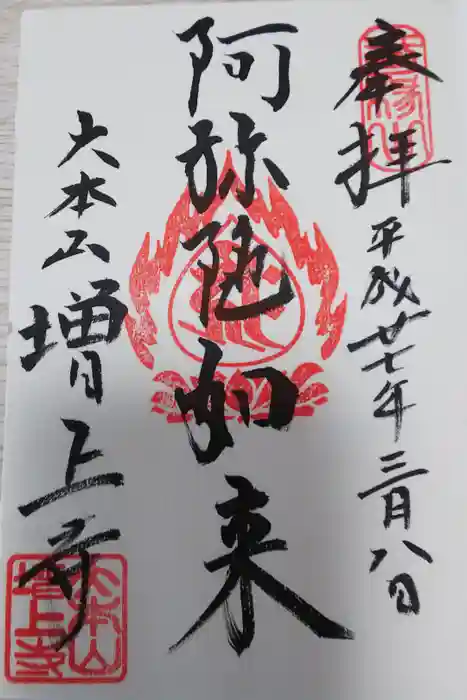 奉拝
平成廿七年三月八日
阿弥陀如来
大本山増上寺
大本山
増上寺